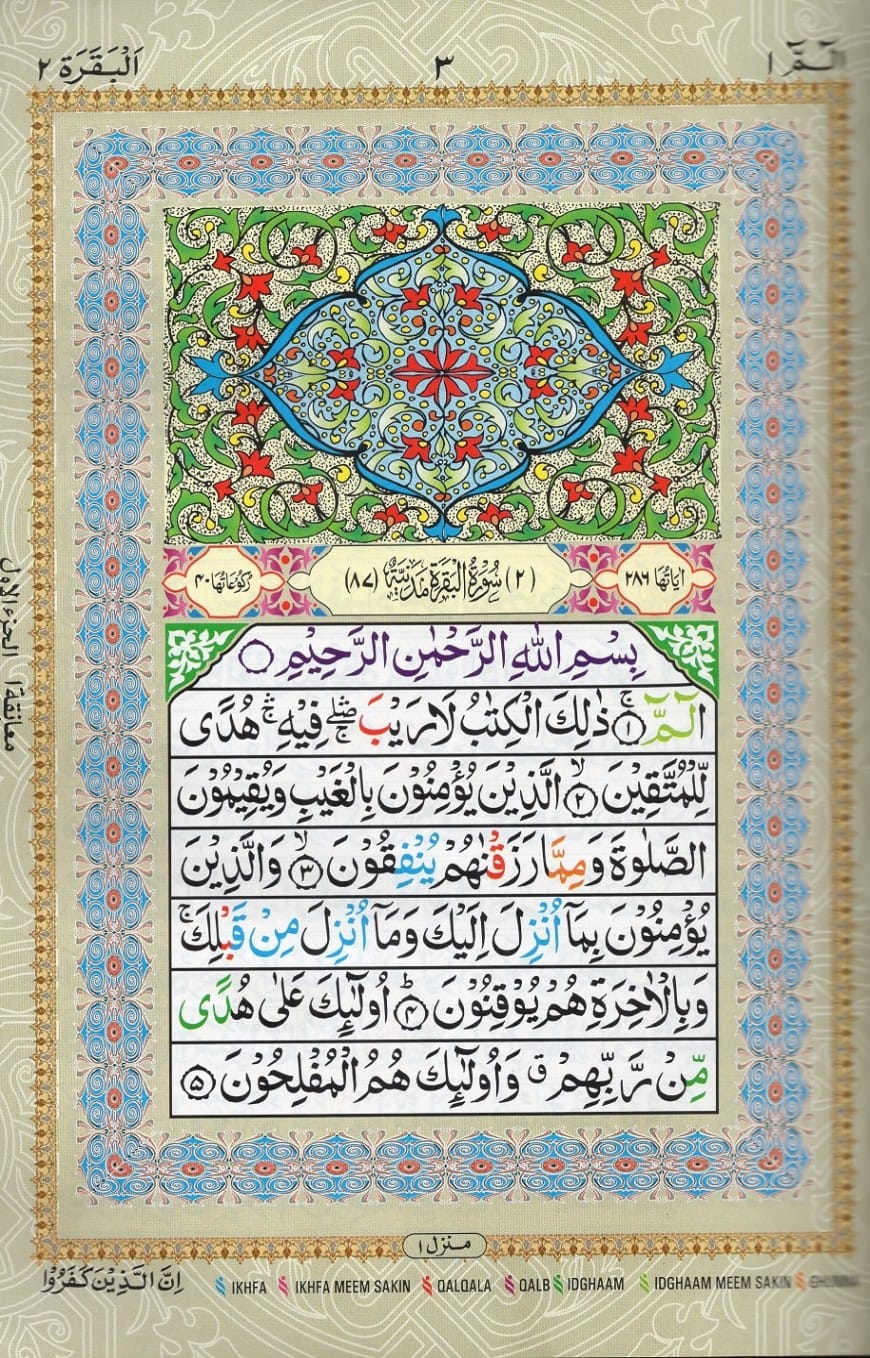 الٓمّٓ ١
٣
اَلْبَقَرَة ٢
اٰیَاتُهَا ٢٨٦
(٢) سُوْرَةُ الْبَقَرَةِ مَدَنِيَّةٌ (٨٧)
رُكُوْعَاتُهَا ٤٠
بِسْمِ اللّٰهِ الرَّحْمٰنِ الرَّحِيْمِ
الٓمّٓ ۚ‏﴿١﴾ ذٰلِكَ الْكِتٰبُ لَا رَيْبَ ۛۖۚ فِيْهِ ۛۚ هُدًى
لِّلْمُتَّقِيْنَ ۙ‏﴿٢﴾ الَّذِيْنَ يُؤْمِنُوْنَ بِالْغَيْبِ وَيُقِيْمُوْنَ
الصَّلٰوةَ وَمِمَّا رَزَقْنٰهُمْ يُنْفِقُوْنَ ۙ‏﴿٣﴾ وَالَّذِيْنَ
يُؤْمِنُوْنَ بِمَآ اُنْزِلَ اِلَيْكَ وَمَآ اُنْزِلَ مِنْ قَبْلِكَ ۚ
وَبِالْاٰخِرَةِ هُمْ يُوْقِنُوْنَ ؕ‏﴿٤﴾ اُولٰٓئِكَ عَلٰى هُدًى
مِّنْ رَّبِّهِمْ ۗ وَاُولٰٓئِكَ هُمُ الْمُفْلِحُوْنَ ﴿٥﴾
معانقة ١ الجزء الاول
منزل ١
اِنَّ الَّذِيْنَ كَفَرُوْا
IKHFA IKHFA MEEM SAKIN QALQALA QALB IDGHAAM IDGHAAM MEEM SAKIN